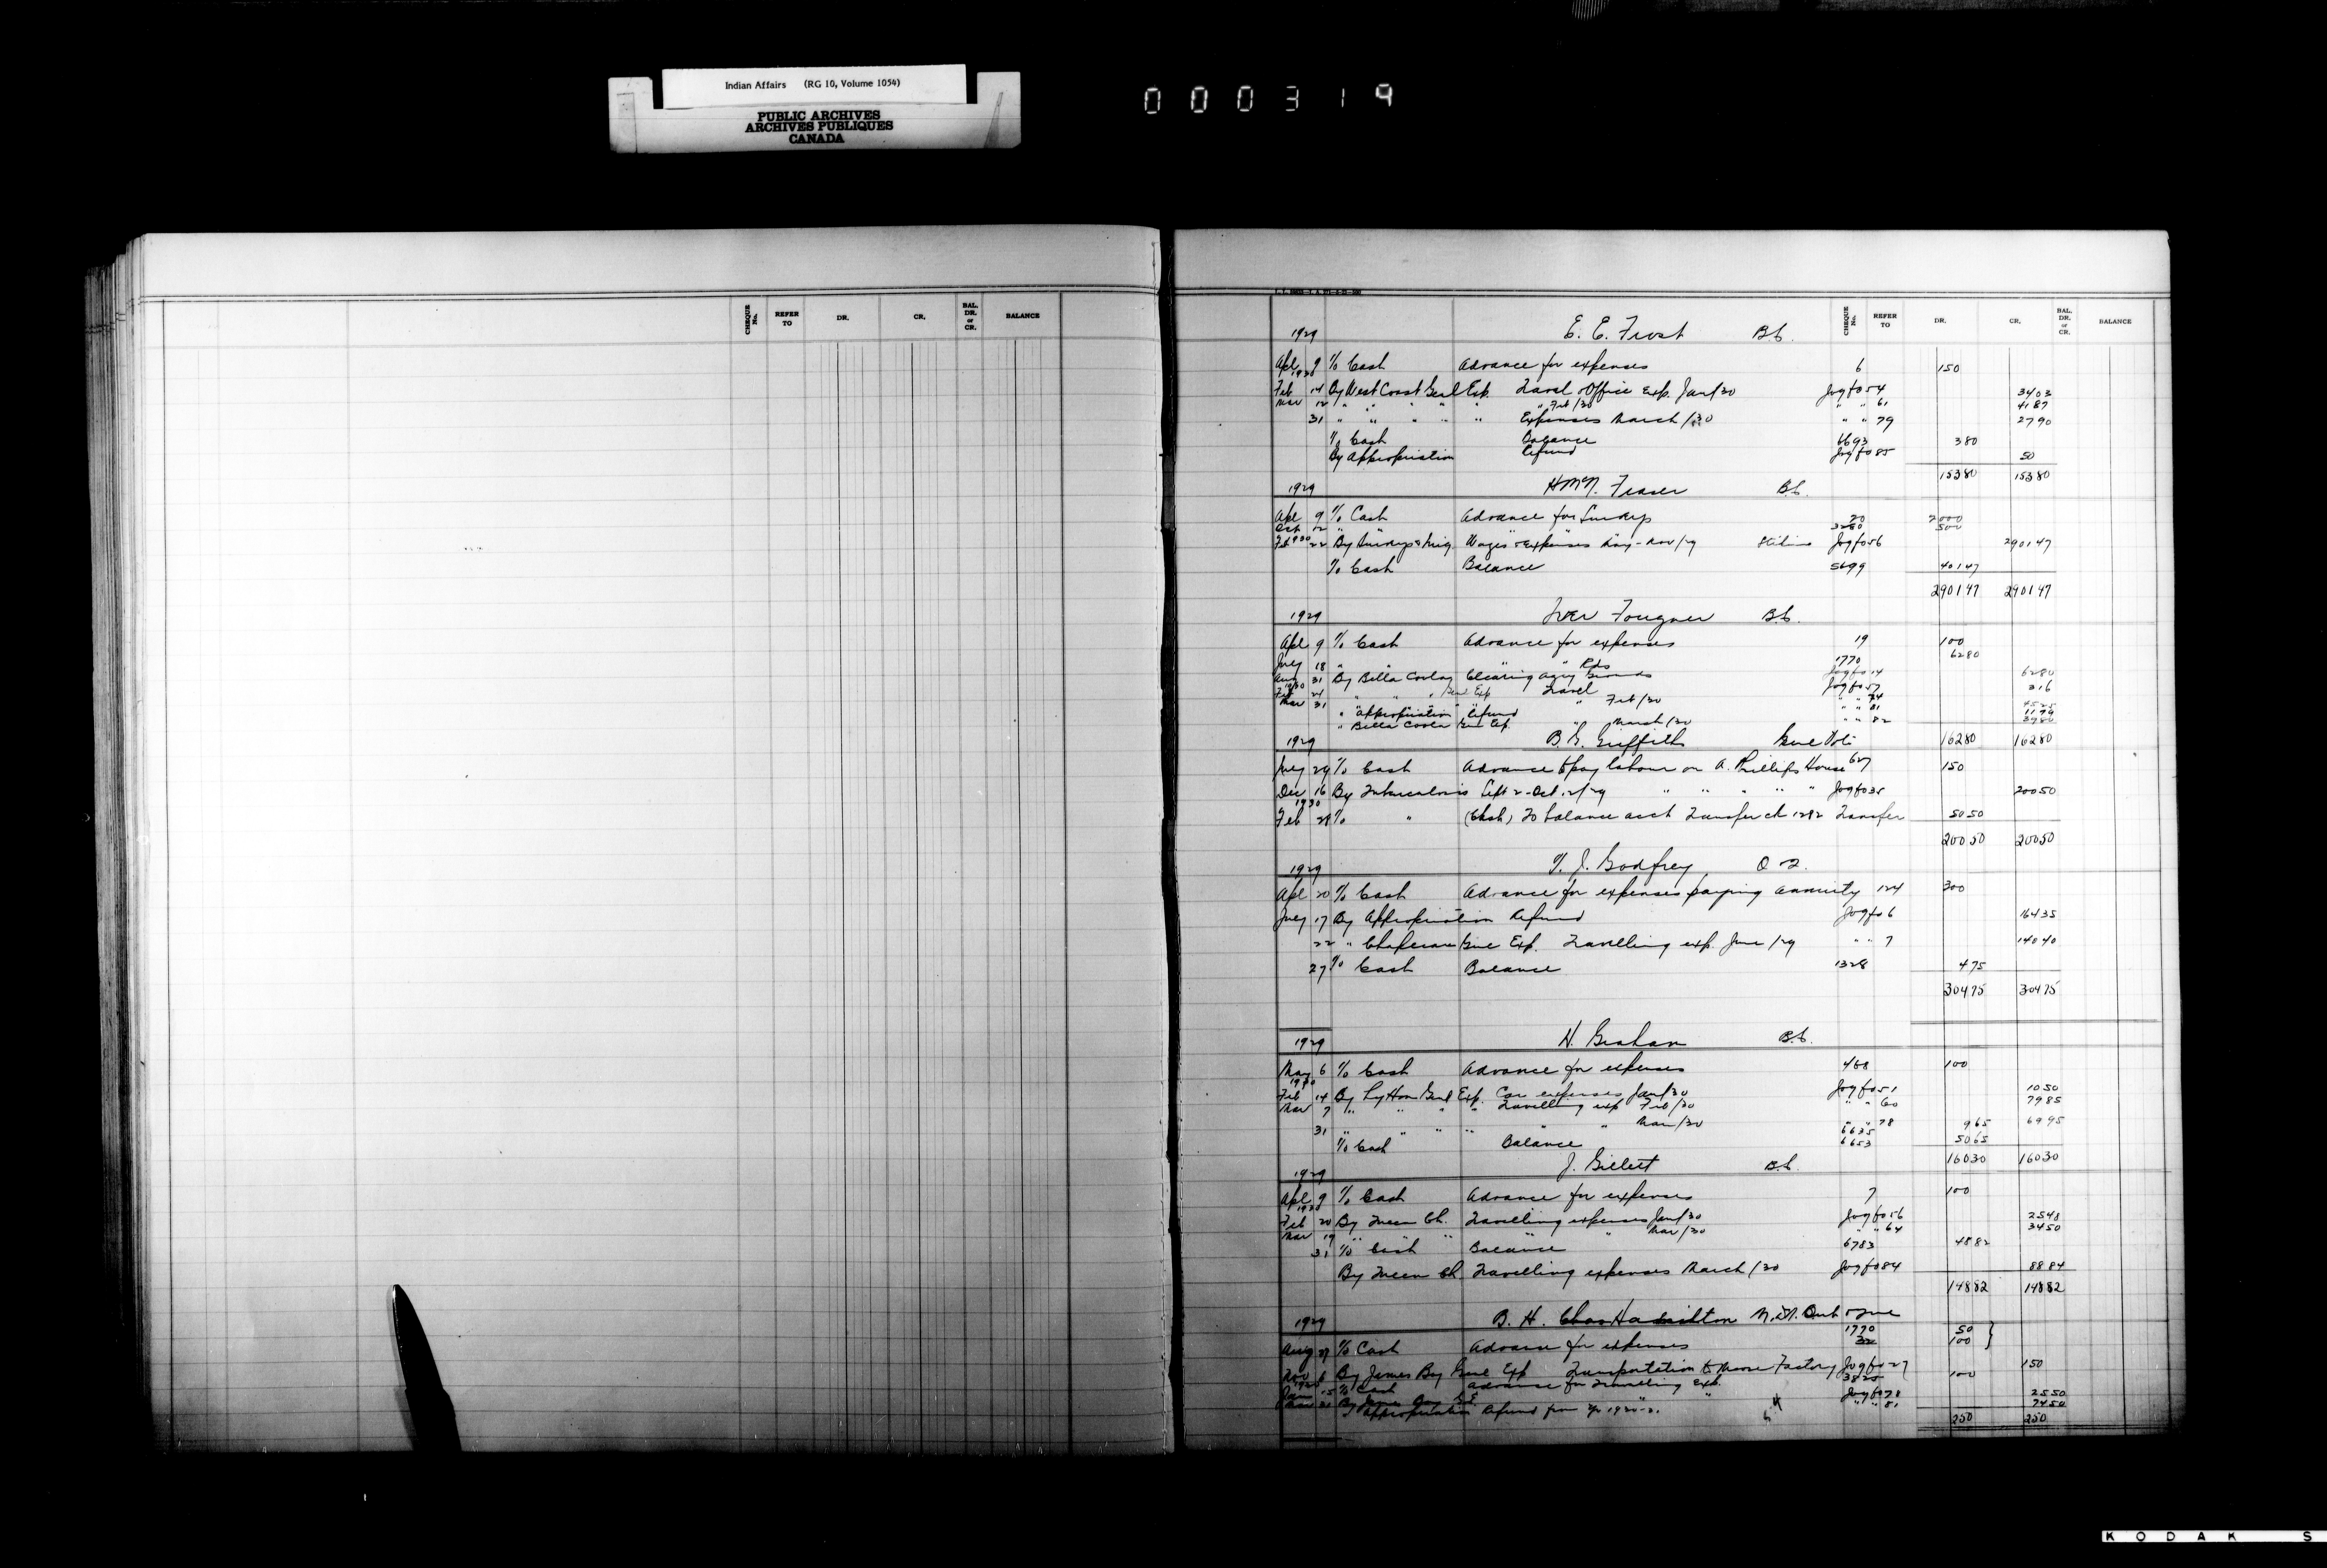 Indian Affairs (RG 10, Volume 1054)
PUBLIC ARCHIVES
ARCHIVES PUBLIQUES
CANADA
000319
CHEQUE No. REFER TO DR. CR. BAL. DR. or CR. BALANCE
CHEQUE No. REFER TO DR. CR. BAL. DR. or CR. BALANCE
1929 E. E. Frost B.C.
Apl 9 To Cash Advance for expenses 6 150
1930
Feb 14 By West Coast Genl Exp. Travel & Office Exp. Jan/30 Jog fo 54 3403
Mar 12 " " " " " " Feb/30 " " 61 4187
31 " " " " " Expenses March/30 " " 79 2790
To Cash Balance 6693 380
By Appropriation Refund Jog fo 85 50
15380 15380
1929 H McN. Fraser B.C.
Apl 9 To Cash Advance for Surveys 20 2000
Oct 12 " " 3280 500
1930
Feb 22 By Surveys & Wages & Expenses May - Nov/29 Jog fo 56 290147
To Cash Balance 5699 40147
290147 290147
1929 Iver Fougner B.C.
Apl 9 To Cash Advance for expenses 19 100
July 18 " " " " Rds 1770 6280
Aug 31 By Bella Coola Clearing Agcy Grounds Jog fo 14 6280
1930
Feb 24 " " " Genl Exp Travel Jog fo 57 316
Mar 31 " Feb/30 " " 74 4525
" Appropriation Refund " " 81 1179
" Bella Coola Genl Exp. " March/30 " " 82 3980
1929 B. G. Griffith 16280 16280
July 29 To Cash Advance to pay labour on A. Phillips House 627 150
Dec 16 By Tuberculosis Sept 2 - Oct. 12/29 " " " " " Jog fo 35 20050
1930
Feb 28 To " (Cash) To balance acct Transfer ch 1282 Transfer 5050
20050 20050
1929 T. J. Godfrey O 2.
Apl 20 To Cash Advance for expenses paying annuity 124 300
July 17 By Appropriation Refund Jog fo 6 16435
22 " Chapleau Genl Exp. Travelling exp. June/29 " " 7 14040
27 To Cash Balance 1328 475
30475 30475
1929 H. Graham B.C.
May 6 To Cash Advance for expenses 468 100
1930
Feb 14 By Lytton Genl Exp. Car expenses Jan/30 Jog fo 51 1050
Mar 7 " " " " Travelling exp Feb/30 " " 60 7985
31 " " " " " " Mar/30 " " 78 6995
6635 965
To Cash Balance 6653 5065
16030 16030
1929 J. Gillett B.C.
Apl 9 To Cash Advance for expenses 7 100
1930
Feb 20 By Queen Ch. Travelling expenses Jan/30 Jog fo 56 2548
Mar 19 " " " " " Mar/30 " " 64 3450
31 To Cash Balance 6783 4882
By Queen Ch. Travelling expenses March/30 Jog fo 84 8884
14882 14882
1929 B. H. Chas Hamilton
1770 50
Aug 27 To Cash Advance for expenses 100
Nov 6 By James Bay Genl Exp Transportation to Moose Factory Jog fo 27 150
1930
Jan 15 To Cash Advance for travelling Exp. 3825 100
Mar 31 By James Bay G.E. Jog fo 78 2550
" Appropriation Refund " " 81 7450
250 250
KODAK S